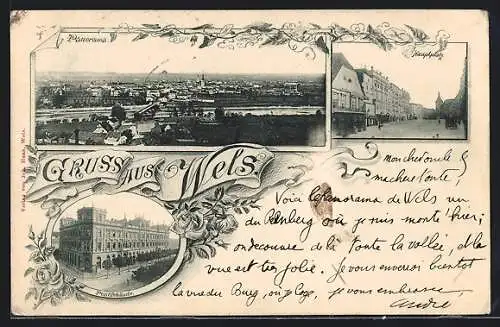 Panorama.
Hauptplatz
Gruss aus Wels.
Verlag von Joh. Haas, Wels.
Mon cher oncle &
ma chere tante,
Voici le panorama de Wels vu
du où je suis monté hier;
on découvre de là toute la vallée, et la
vue est très jolie. Je vous enverrai bientôt
la vue du Burg, où je loge, je vous embrasse
André